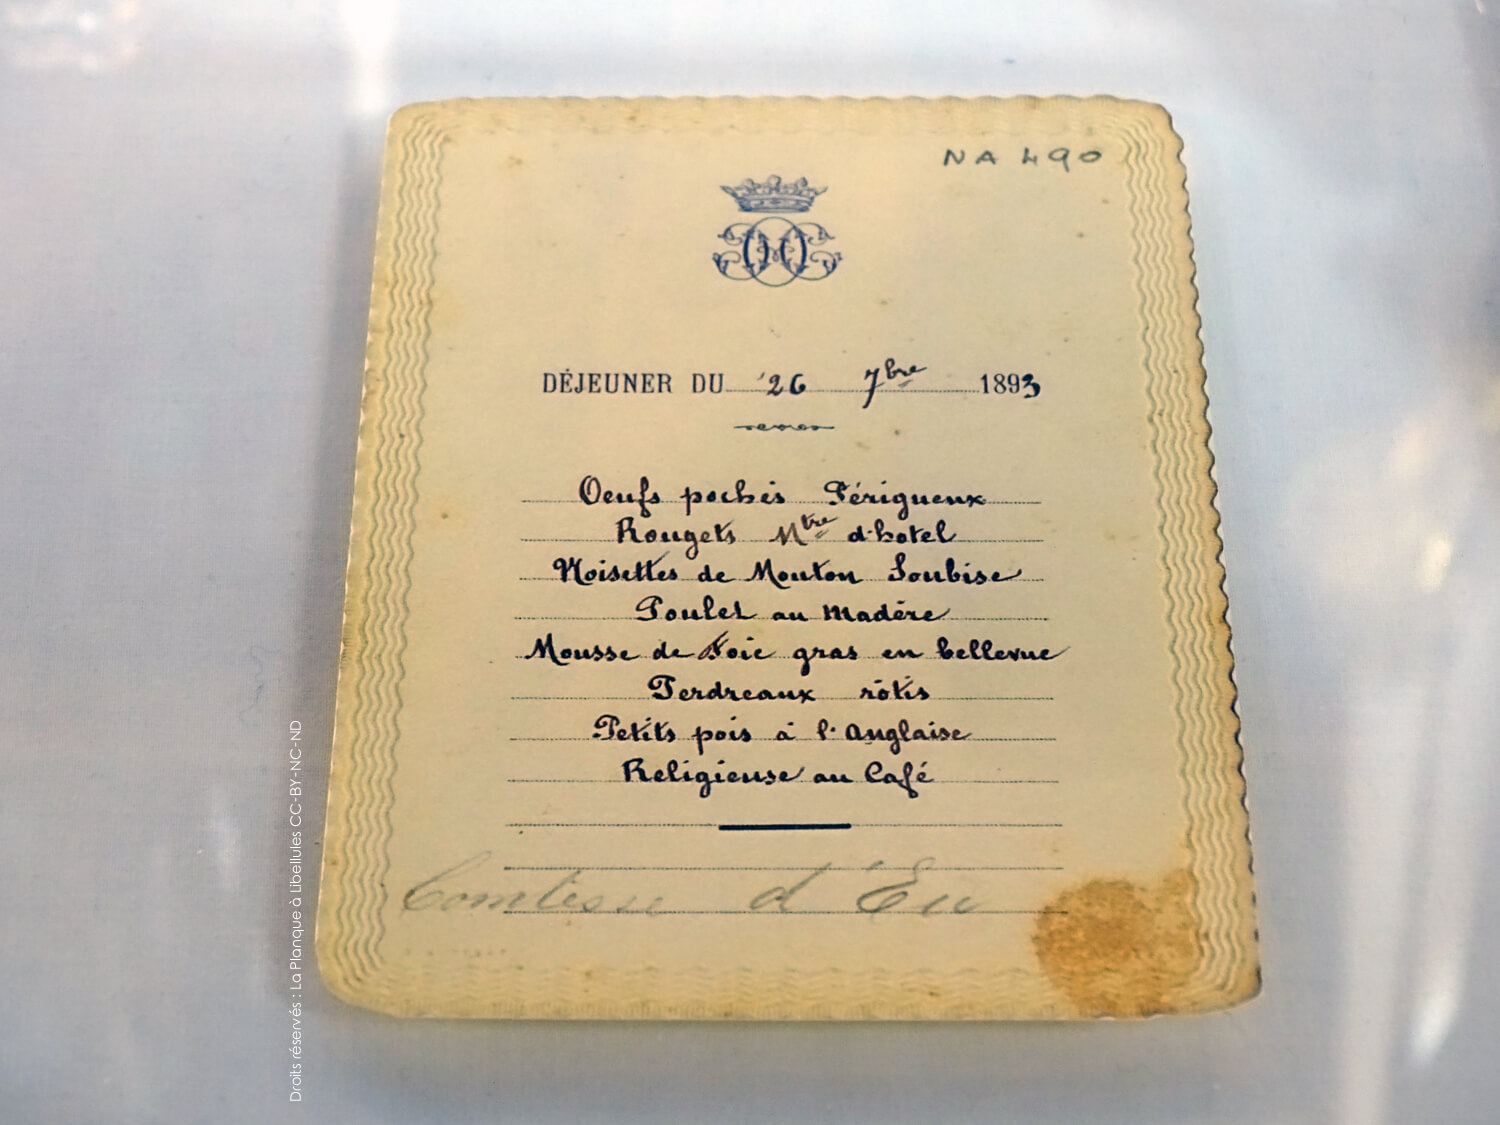 NA 490
DÉJEUNER DU 26 7bre 1893
Oeufs pochés Périgueux
Rougets Mtre d'hotel
Noisettes de Mouton Soubise
Poulet au Madère
Mousse de Foie gras en bellevue
Perdreaux rôtis
Petits pois à l'Anglaise
Religieuse au Café
Comtesse d'Eu
Droits réservés : La Planque à Libellules CC-BY-NC-ND